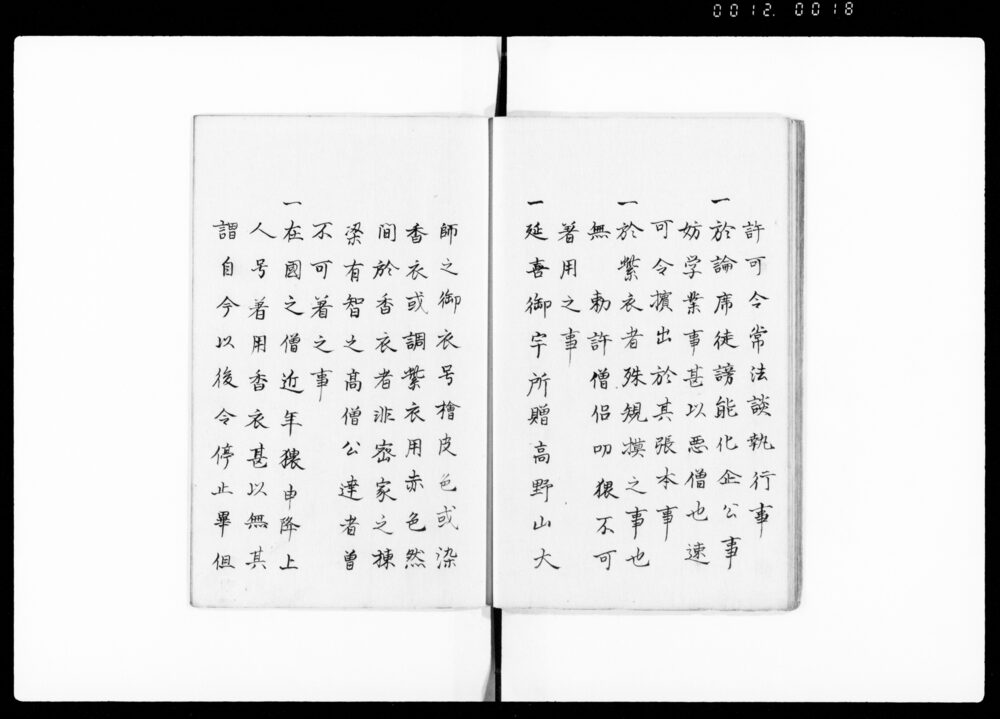 0012. 0018
許可令常法談執行事
一於論席徒謗能化企公事
妨学業事甚以悪僧也速
可令擯出於其張本事
一於紫衣者殊規摸之事也
無 勅許僧侶叨猥不可
著用之事
一延喜御宇所贈高野山大
師之御衣号檜皮色或染
香衣或調紫衣用赤色然
間於香衣者非密家之棟
梁有智之高僧公達者曽
不可著之事
一在國之僧近年猥申降上
人号著用香衣甚以無其
謂自今以後令停止畢但